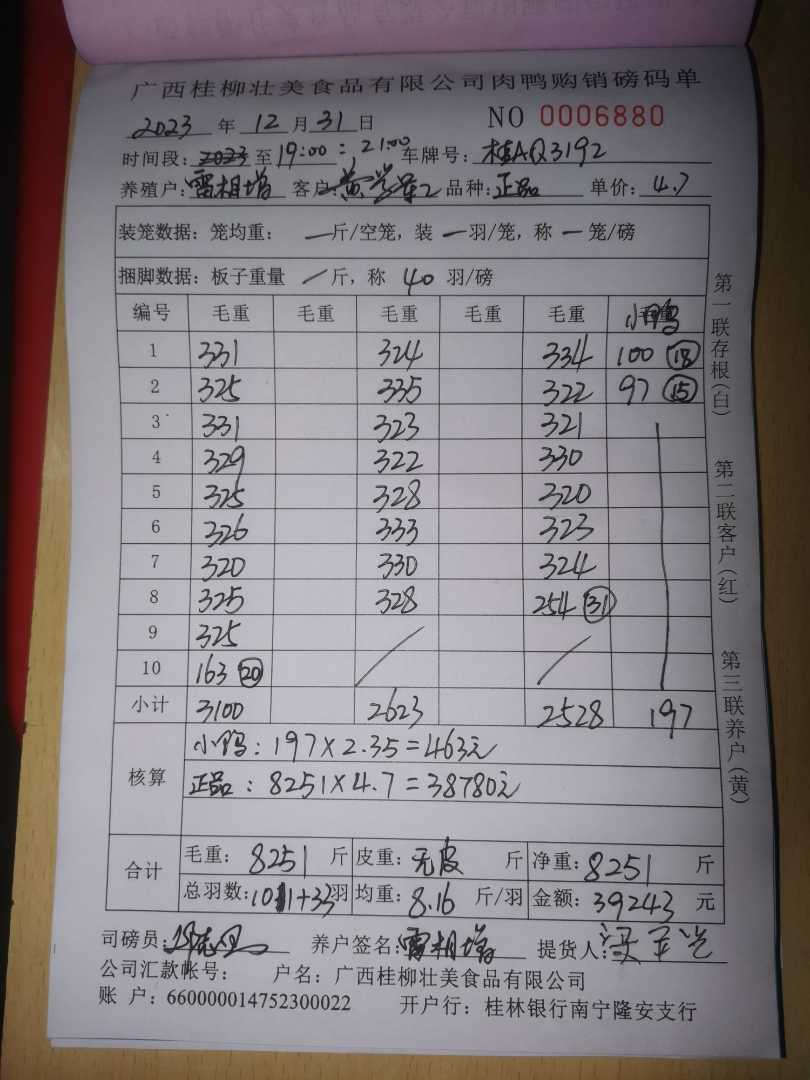 广西桂柳壮美食品有限公司肉鸭购销磅码单
2023 年 12 月 31 日 NO 0006880
时间段: 2023 至 19:00 : 21:00 车牌号: 桂AQ3192
养殖户: 雷相增 客户: 品种: 正品 单价: 4.7
装笼数据: 笼均重: 一 斤/空笼, 装 一 羽/笼, 称 一 笼/磅
捆脚数据: 板子重量 / 斤, 称 40 羽/磅
编号 毛重 毛重 毛重 毛重 毛重 小鸭
1 331 324 334 100 (18)
2 325 335 322 97 (15)
3 331 323 321
4 329 322 330
5 325 328 320
6 326 333 323
7 320 330 324
8 325 328 254 (31)
9 325 / /
10 163 (20)
小计 3100 2623 2528 197
核算
小鸭: 197×2.35=463元
正品: 8251×4.7=38780元
合计
毛重: 8251 斤 皮重: 无皮 斤 净重: 8251 斤
总羽数: 1011+33 羽 均重: 8.16 斤/羽 金额: 39243 元
司磅员: 养户签名: 雷相增 提货人:
公司汇款帐号: 户名: 广西桂柳壮美食品有限公司
账 户: 660000014752300022 开户行: 桂林银行南宁隆安支行
第一联存根(白) 第二联客户(红) 第三联养户(黄)